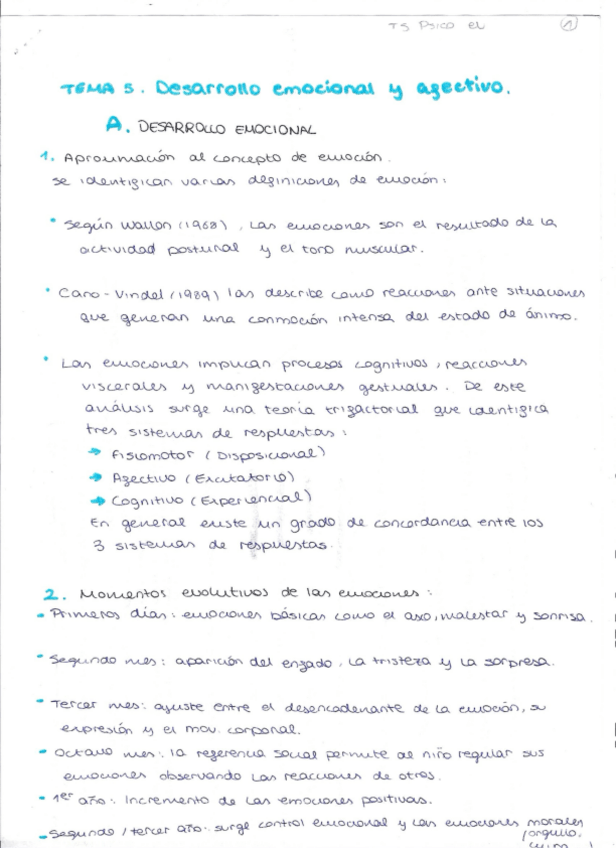 T5 Psico el
1
TEMA 5. Desarrollo emocional y afectivo.
A. DESARROLLO EMOCIONAL
1. Aproximación al concepto de emoción.
Se identifican varias definiciones de emoción:
• Según Wallon (1968), las emociones son el resultado de la
actividad postural y el tono muscular.
• Cano-Vindel (1989) las describe como reacciones ante situaciones
que generan una conmoción intensa del estado de ánimo.
• Las emociones implican procesos cognitivos, reacciones
viscerales y manifestaciones gestuales. De este
análisis surge una teoría trifactorial que identifica
tres sistemas de respuestas:
→ Fisiomotor (Disposicional)
→ Afectivo (Excitatorio)
→ Cognitivo (Experiencial)
En general existe un grado de concordancia entre los
3 sistemas de respuestas.
2. Momentos evolutivos de las emociones:
- Primeros días: emociones básicas como el asco, malestar y sonrisa.
- Segundo mes: aparición del enfado, la tristeza y la sorpresa.
- Tercer mes: ajuste entre el desencadenante de la emoción, su
expresión y el mov. corporal.
- Octavo mes: la referencia social permite al niño regular sus
emociones observando las reacciones de otros.
- 1er año: Incremento de las emociones positivas.
- Segundo/tercer año: surge control emocional y las emociones morales
(orgullo,